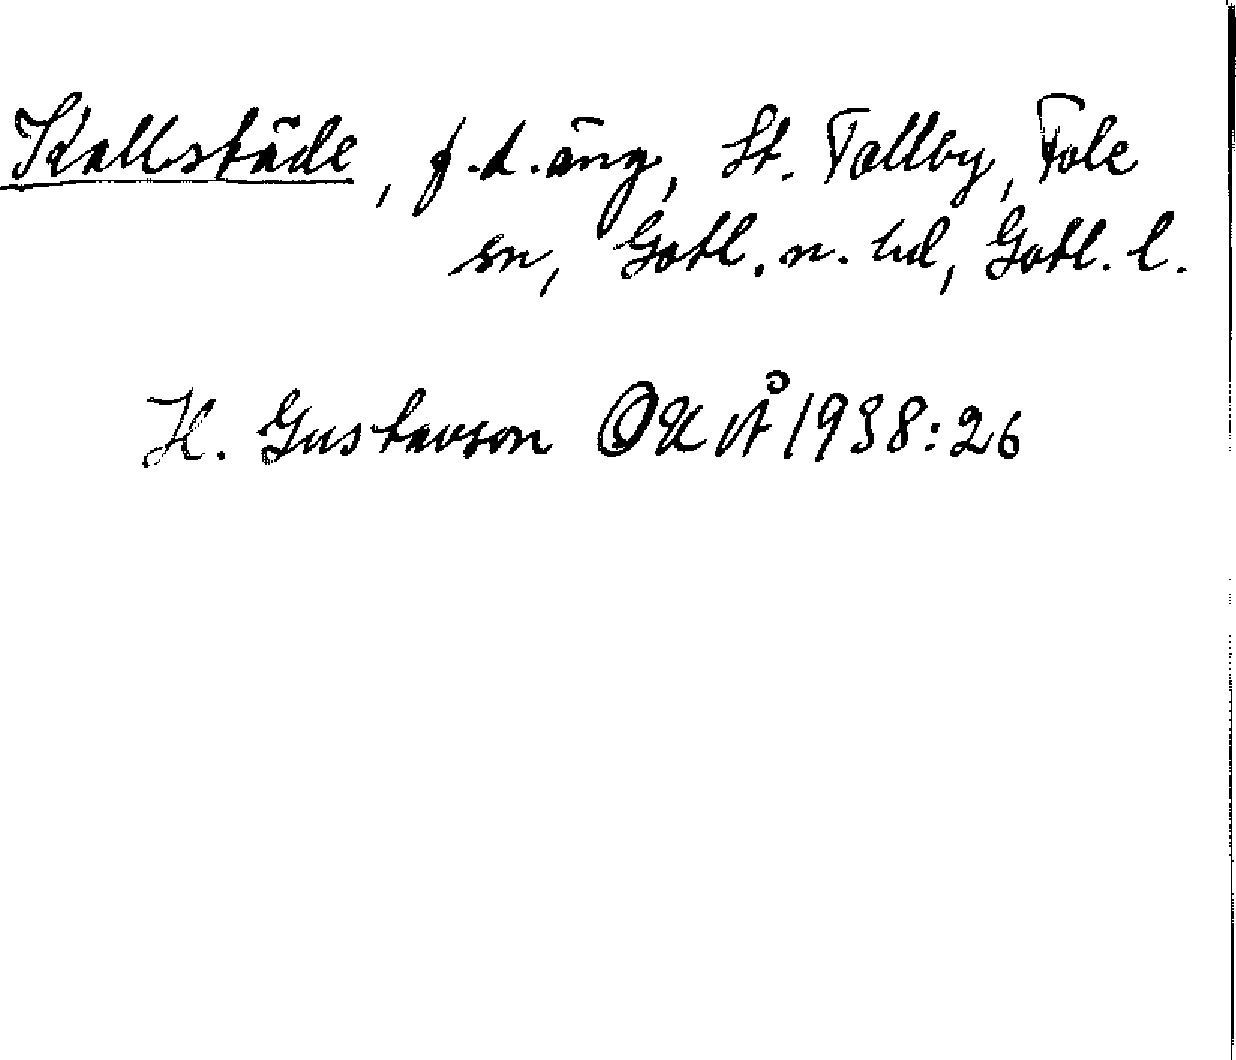 Kallstäde, f.d. äng, St. Tollby, Fole
sn, Gotl. n. hd, Gotl. l.
H. Gustavson OUÅ 1938:26